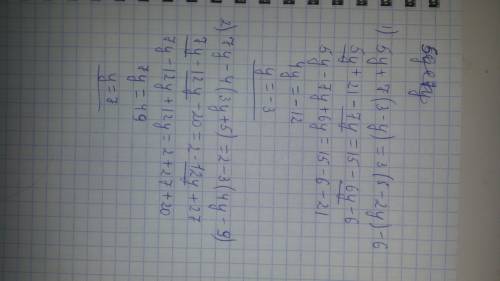 1) 5y + 7(3-y) = 3(5-2y)-6
5y + 21 - 7y = 15 - 6y - 6
5y - 7y + 6y = 15 - 6 - 21
4y = -12
y = -3
2) 7y - 4(3y+5) = 2-3(4y-9)
7y - 12y - 20 = 2 - 12y + 27
7y - 12y + 12y = 2 + 27 + 20
7y = 49
y = 7